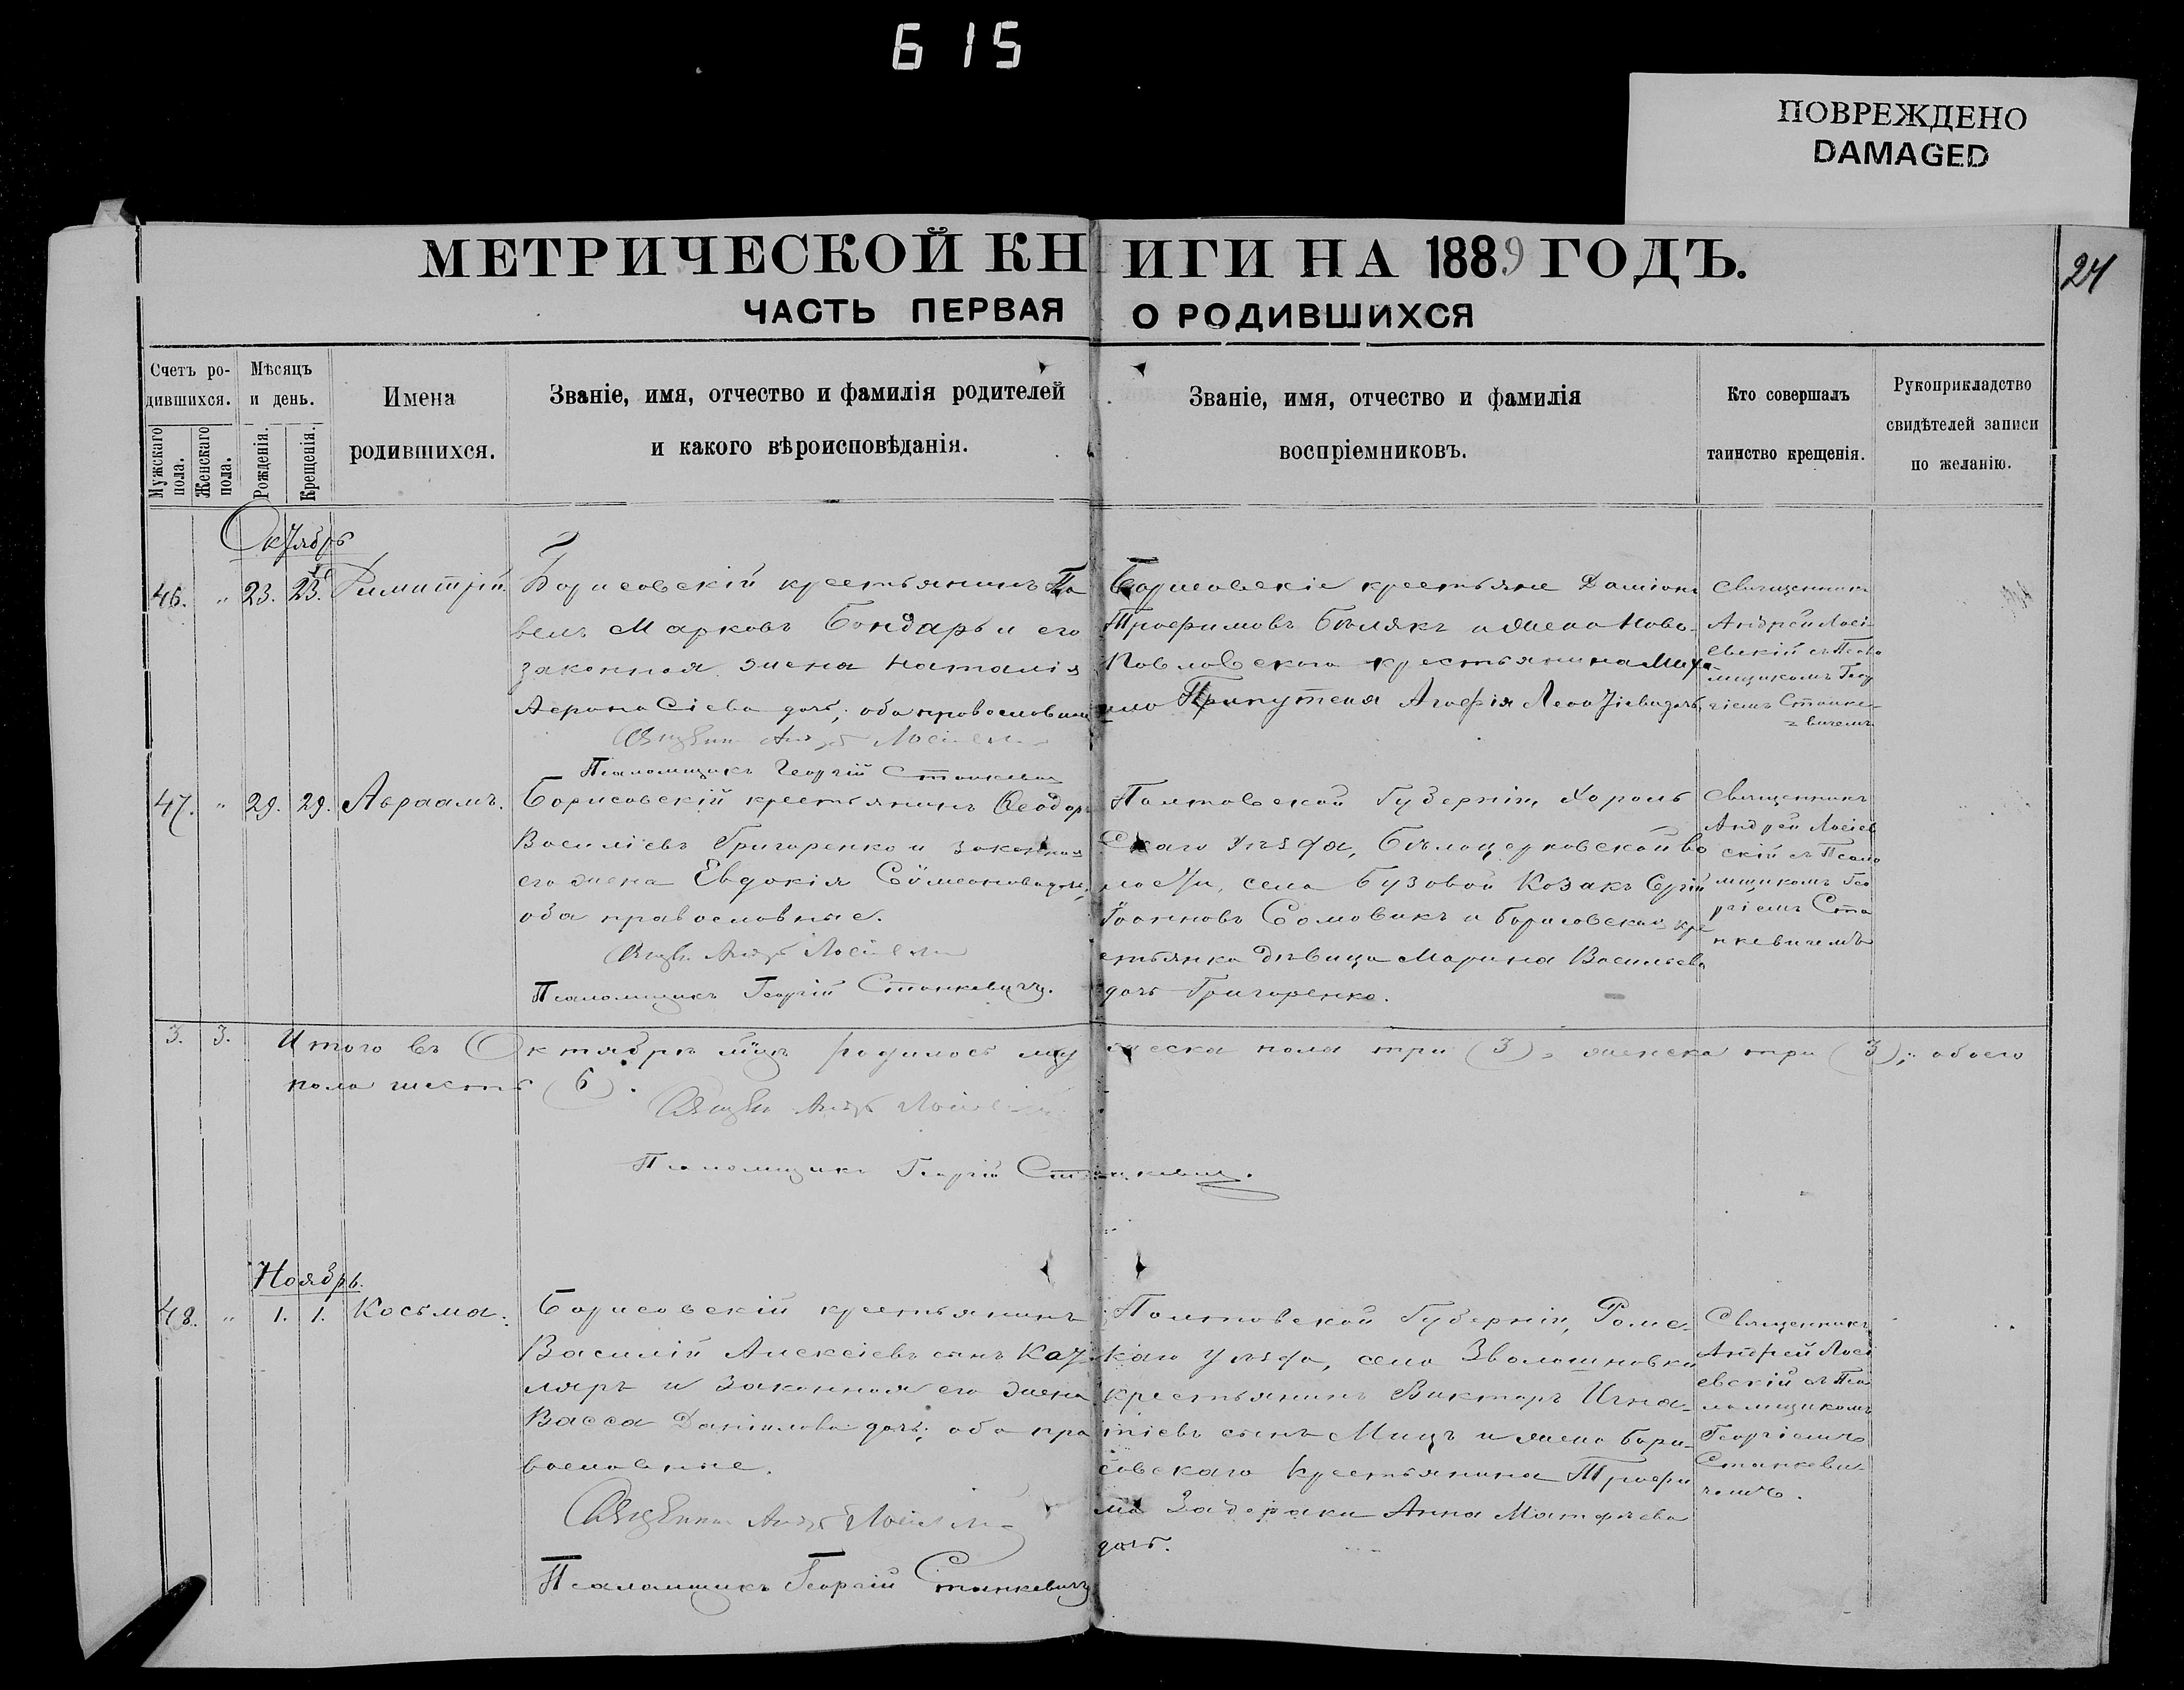 615
ПОВРЕЖДЕНО
DAMAGED
МЕТРИЧЕСКОЙ КНИГИ НА 1889 ГОДЪ.
24
ЧАСТЬ ПЕРВАЯ О РОДИВШИХСЯ
Счетъ родившихся.
Мужскаго пола.
Женскаго пола.
Мѣсяцъ и день.
Рожденія.
Крещенія.
Имена
родившихся.
Званіе, имя, отчество и фамилія родителей
и какого вѣроисповѣданія.
Званіе, имя, отчество и фамилія
воспріемниковъ.
Кто совершалъ
таинство крещенія.
Рукоприкладство
свидѣтелей записи
по желанію.
Октябрь
46. " 23. 23. Димитрій.
Борисовскій крестьянинъ Па
велъ Марковъ Бондарь и его
законная жена Наталія
дочь; оба православные
Псаломщикъ Георгій Станкевичъ
Борисовскіе крестьяне Даміанъ
Трофимовъ Бѣлякъ и жена Ново-
Павловскаго крестьянина Миха
ила Припутеня Агафія дочь
Священникъ
Андрей Лосі
евскій съ Псало
мщикомъ Геор
гіемъ Станке-
вичемъ
47. " 29. 29. Авраамъ.
Борисовскій крестьянинъ Ѳеодоръ
Василіевъ Григоренко и законная
его жена Евдокія Сѵмеонова дочь;
оба православные.
Псаломщикъ Георгій Станкевичъ.
Полтавской Губерніи, Хороль
скаго уѣзда, Бѣлоцерковской во
лости, села Бузовой Козакъ Сергій
Іоанновъ Сомовикъ и Борисовская кре
стьянка дѣвица Марина Васильева
дочь Григоренко.
Священникъ
Андрей Лосіев
скій съ Псало
мщикомъ Гео
ргіемъ Ста
нкевичемъ
3. 3. Итого въ Октябрѣ м̃цѣ родилось мужеска пола три (3), женска три (3); обоего
пола шесть (6).
Псаломщикъ Георгій Станкевичъ.
Ноябрь.
48. " 1. 1. Косьма.
Борисовскій крестьянинъ
Василій Алексіевъ сынъ Кот
ляръ и законная его жена
Васса Даніилова дочь; оба пра
вославные.
Псаломщикъ Георгій Станкевичъ
Полтавской Губерніи, Роме-
каго Уѣзда, села Зволошновки
крестьянинъ Викторъ Игна-
тіевъ сынъ Мицъ и жена Бори-
совскаго крестьянина Трофи
ма Задераки Анна Матфѣева
дочь.
Священникъ
Андрей Лосі
евскій съ Пса
ломщикомъ
Георгіемъ
Станкеви-
чемъ.